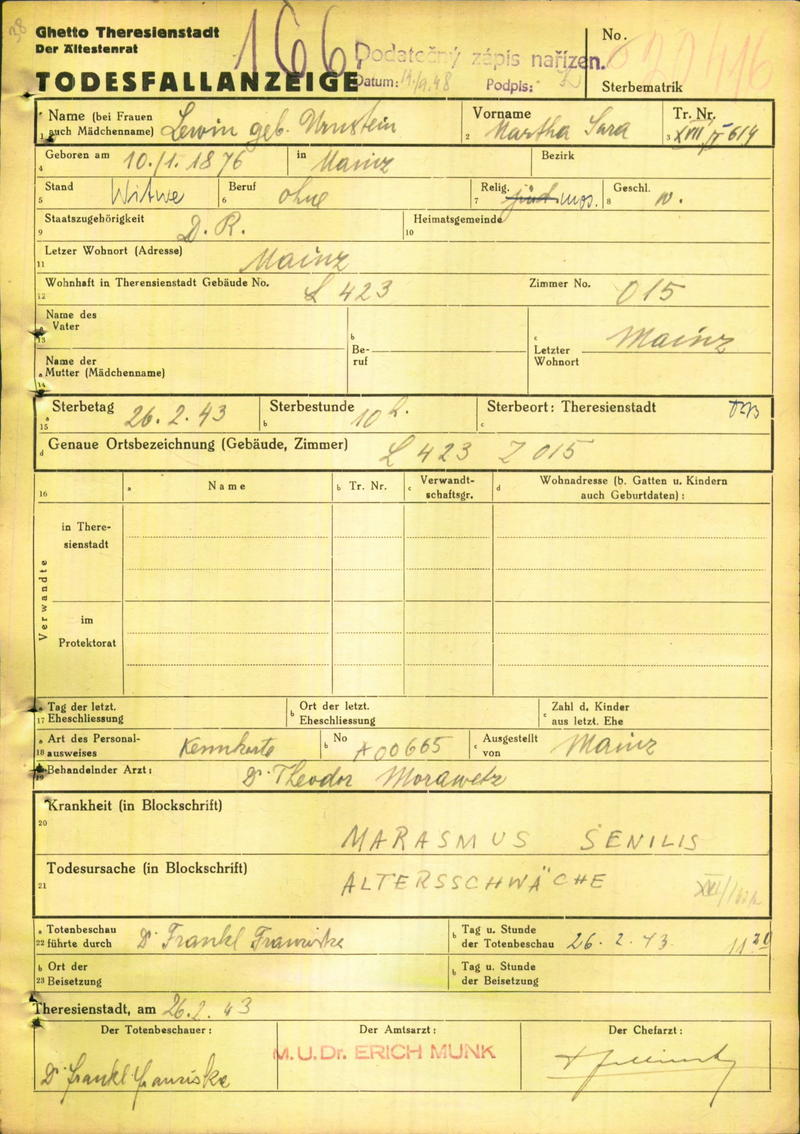 Ghetto Theresienstadt
Der Ältestenrat
TODESFALLANZEIGE
166
Dodatečný zápis nařízen.
Datum: 14/9.48 Podpis:
No.
Sterbematrik
Name (bei Frauen auch Mädchenname) Lewin geb. Urnstein
1
Vorname Martha Sara
2
Tr. Nr.
3
Geboren am 10./1. 1876 in Mainz Bezirk
4
Stand Witwe Beruf ohne Relig. jüd. mos. Geschl. w.
5 6 7 8
Staatszugehörigkeit D. R. Heimatsgemeinde
9 10
Letzer Wohnort (Adresse) Mainz
11
Wohnhaft in Therensienstadt Gebäude No. L 423 Zimmer No. 015
12
Name des Vater
13
Name der Mutter (Mädchenname)
14
b Be-ruf
c Letzter Wohnort Mainz
a Sterbetag 26. 2. 43 b Sterbestunde 10 h. c Sterbeort: Theresienstadt
15
d Genaue Ortsbezeichnung (Gebäude, Zimmer) L 423 Z 015
16 a Name b Tr. Nr. c Verwandt-schaftsgr. d Wohnadresse (b. Gatten u. Kindern auch Geburtdaten):
Verwandte
in There-sienstadt
im Protektorat
a Tag der letzt. Eheschliessung b Ort der letzt. Eheschliessung c Zahl d. Kinder aus letzt. Ehe
17
a Art des Personal-ausweises Kennkarte b No A 00665 c Ausgestellt von Mainz
18
Behandelnder Arzt: Dr. Theodor Morawetz
19
Krankheit (in Blockschrift)
20
MARASMUS SENILIS
Todesursache (in Blockschrift)
21
ALTERSSCHWÄCHE
a Totenbeschau führte durch Dr. Frankl Franziska b Tag u. Stunde der Totenbeschau 26. 2. 43
22
b Ort der Beisetzung b Tag u. Stunde der Beisetzung
23
Theresienstadt, am 26.2.43
Der Totenbeschauer: Der Amtsarzt: Der Chefarzt:
Dr. Frankl Franziska M.U.Dr. ERICH MUNK